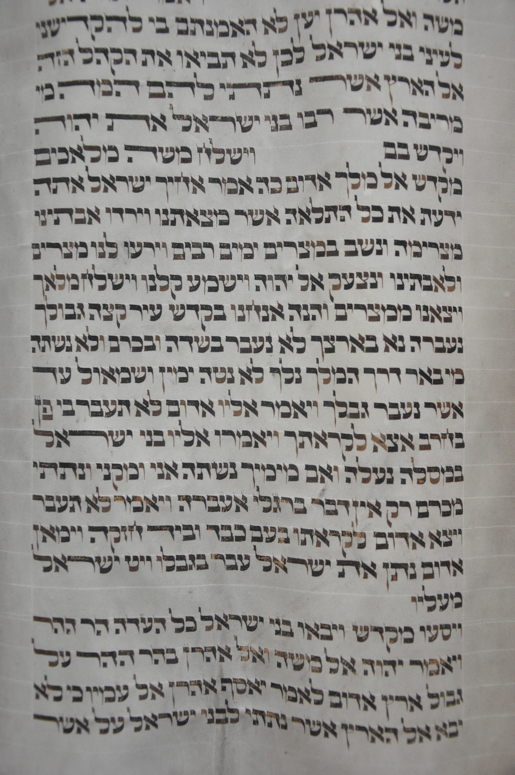 משה ואל אהרן יען לא האמנתם בי להקדישני
לעיני בני ישראל לכן לא תביאו את הקהל הזה
אל הארץ אשר נתתי להם המה מי
מריבה אשר רבו בני ישראל את יהוה
ויקדש בם וישלח משה מלאכים
מקדש אל מלך אדום כה אמר אחיך ישראל אתה
ידעת את כל התלאה אשר מצאתנו וירדו אבתינו
מצרימה ונשב במצרים ימים רבים וירעו לנו מצרים
ולאבתינו ונצעק אל יהוה וישמע קלנו וישלח מלאך
ויצאנו ממצרים והנה אנחנו בקדש עיר קצה גבולך
נעברה נא בארצך לא נעבר בשדה ובכרם ולא נשתה
מי באר דרך המלך נלך לא נטה ימין ושמאול עד
אשר נעבר גבלך ויאמר אליו אדום לא תעבר בי פן
בחרב אצא לקראתך ויאמרו אליו בני ישראל
במסלה נעלה ואם מימיך נשתה אני ומקני ונתתי
מכרם רק אין דבר ברגלי אעברה ויאמר לא תעבר
ויצא אדום לקראתו בעם כבד וביד חזקה וימאן
אדום נתן את ישראל עבר בגבלו ויט ישראל
מעליו
ויסעו מקדש ויבאו בני ישראל כל העדה הר ההר
ויאמר יהוה אל משה ואל אהרן בהר ההר על
גבול ארץ אדום לאמר יאסף אהרן אל עמיו כי לא
יבא אל הארץ אשר נתתי לבני ישראל על אשר